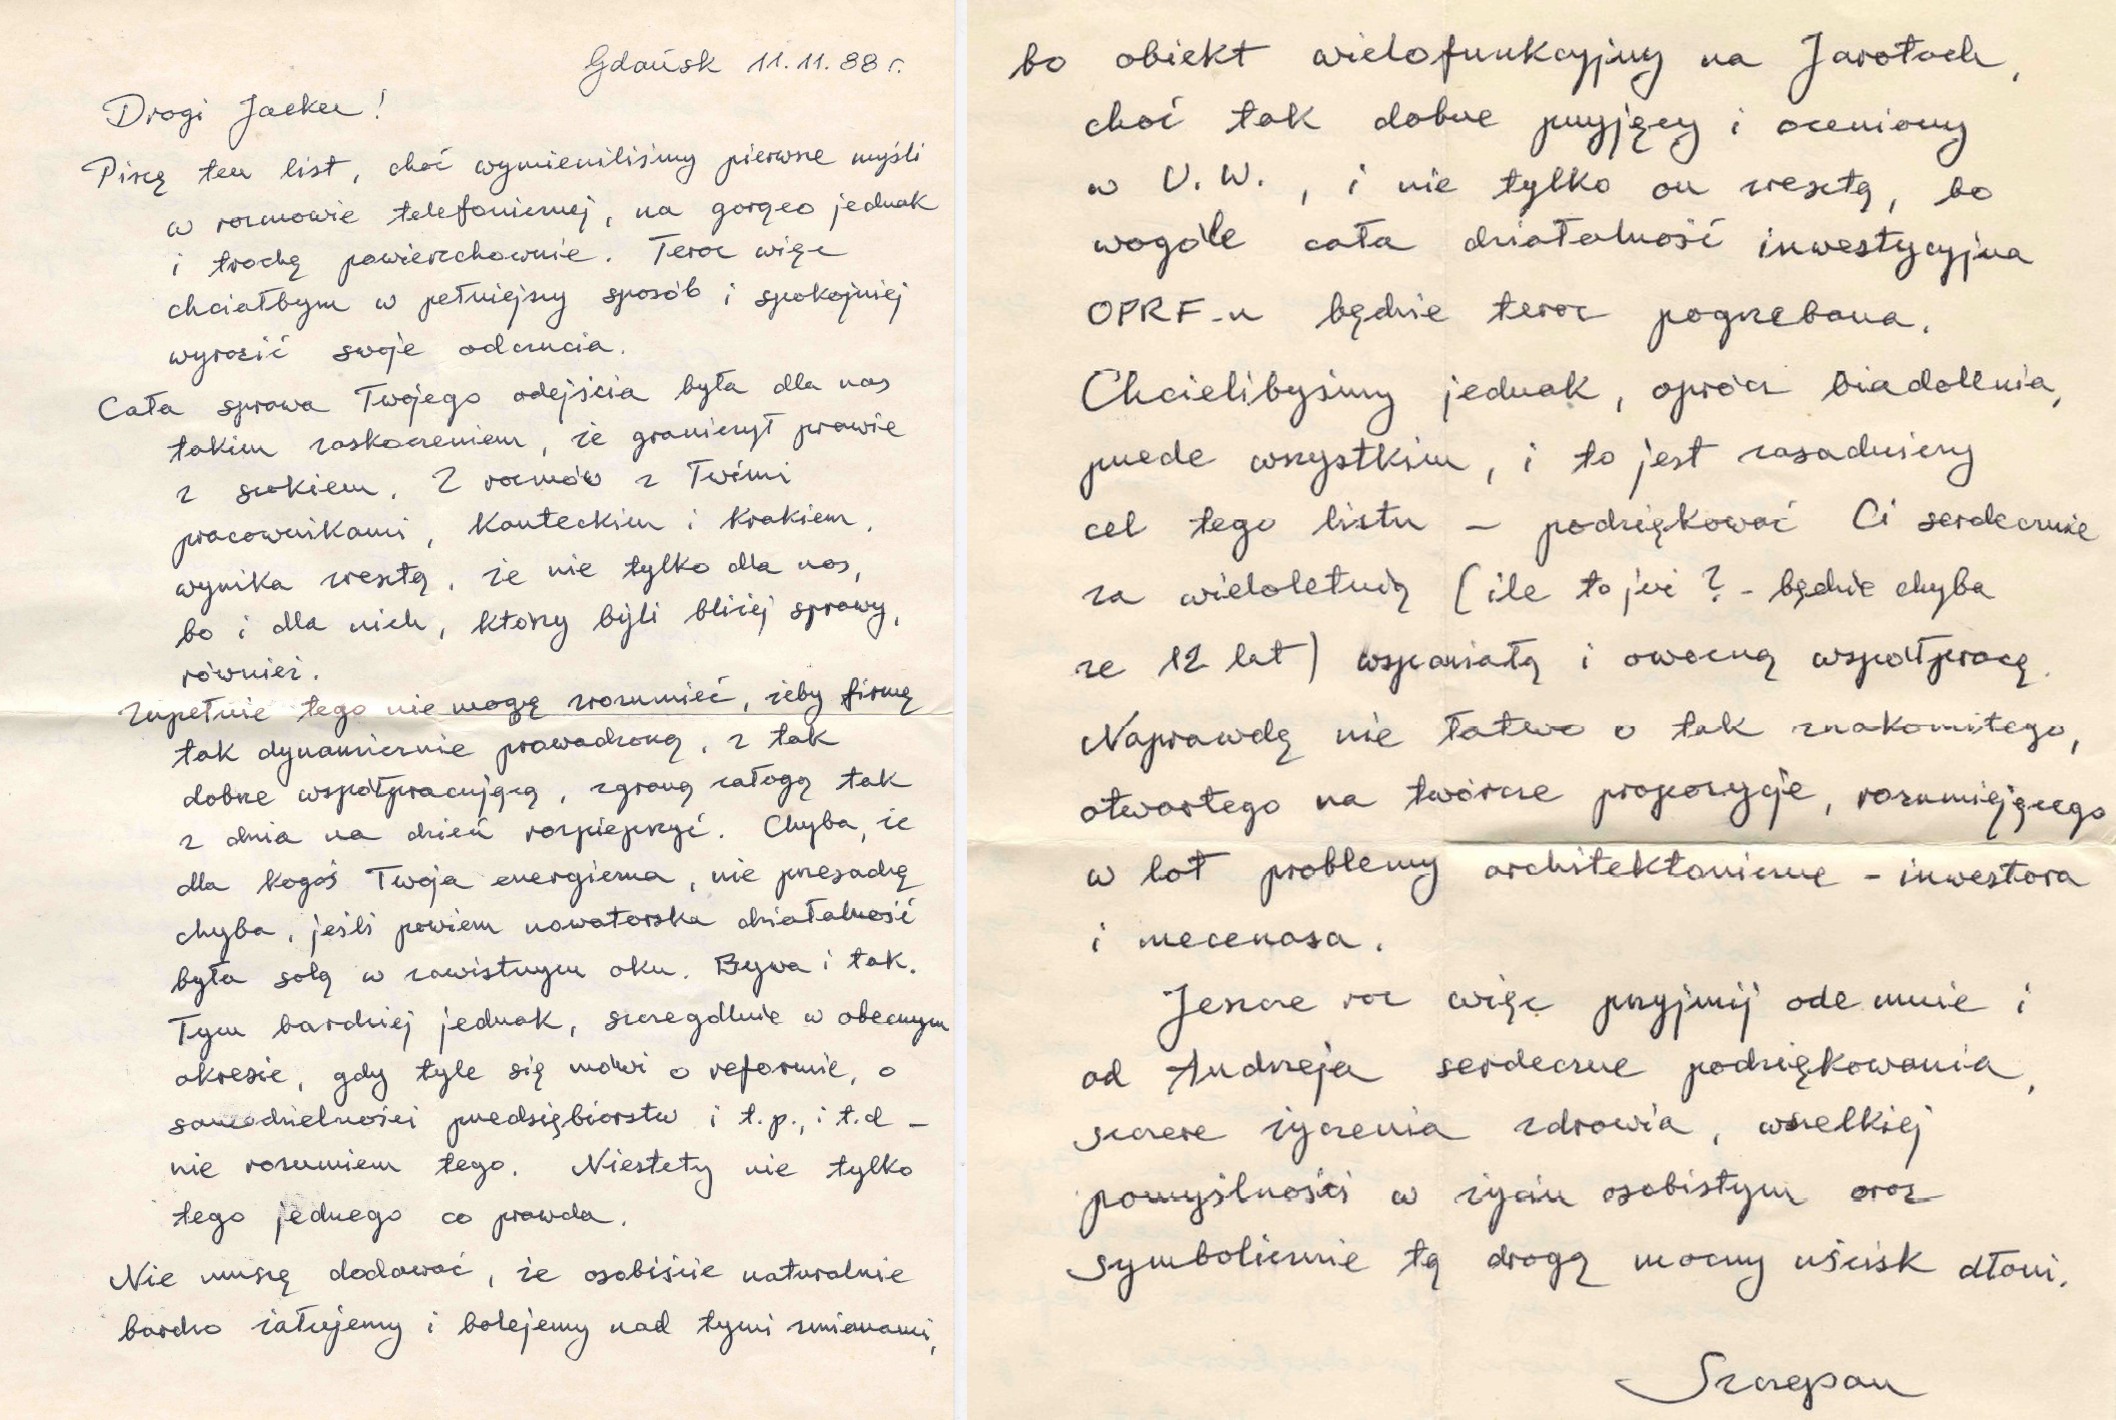 Gdańsk 11.11.88 r.
Drogi Jacku!
Piszę ten list, choć wymieniliśmy pierwsze myśli
w rozmowie telefonicznej, na gorąco jednak
i trochę powierzchownie. Teraz więc
chciałbym w pełniejszy sposób i spokojniej
wyrazić swoje odczucia.
Cała sprawa Twojego odejścia była dla nas
takim zaskoczeniem, że graniczył prawie
z szokiem. Z rozmów z Twími
pracownikami, Kanteckim i Krakiem,
wynika zresztą, że nie tylko dla nas,
bo i dla nich, którzy byli bliżej sprawy,
również.
Zupełnie tego nie mogę zrozumieć, żeby firmę
tak dynamicznie prowadzoną, z tak
dobrze współpracującą, zgraną załogą tak
z dnia na dzień rozpieprzyć. Chyba, że
dla kogoś Twoja energiczna, nie przesadzę
chyba, jeśli powiem nowatorska działalność
była solą w zawistnym oku. Bywa i tak.
Tym bardziej jednak, szczególnie w obecnym
okresie, gdy tyle się mówi o reformie, o
samodzielności przedsiębiorstw i t.p., i t.d –
nie rozumiem tego. Niestety nie tylko
tego jednego co prawda.
Nie muszę dodawać, że osobiście naturalnie
bardzo żałujemy i bolejemy nad tymi zmianami,
bo obiekt wielofunkcyjny na Jarotach,
choć tak dobrze przyjęty i oceniony
w U.W., i nie tylko on zresztą, bo
wogóle cała działalność inwestycyjna
OPRF-u będzie teraz pogrzebana.
Chcielibyśmy jednak, oprócz biadolenia,
przede wszystkim, i to jest zasadniczy
cel tego listu – podziękować Ci serdecznie
za wieloletnią (ile to już? - będzie chyba
ze 12 lat) wspaniałą i owocną współpracę.
Naprawdę nie łatwo o tak znakomitego,
otwartego na twórcze propozycje, rozumiejącego
w lot problemy architektoniczne - inwestora
i mecenasa.
Jeszcze raz więc przyjmij ode mnie i
od Andrzeja serdeczne podziękowania,
szczere życzenia zdrowia, wszelkiej
pomyślności w życiu osobistym oraz
symbolicznie tą drogą mocny uścisk dłoni.
Szczepan